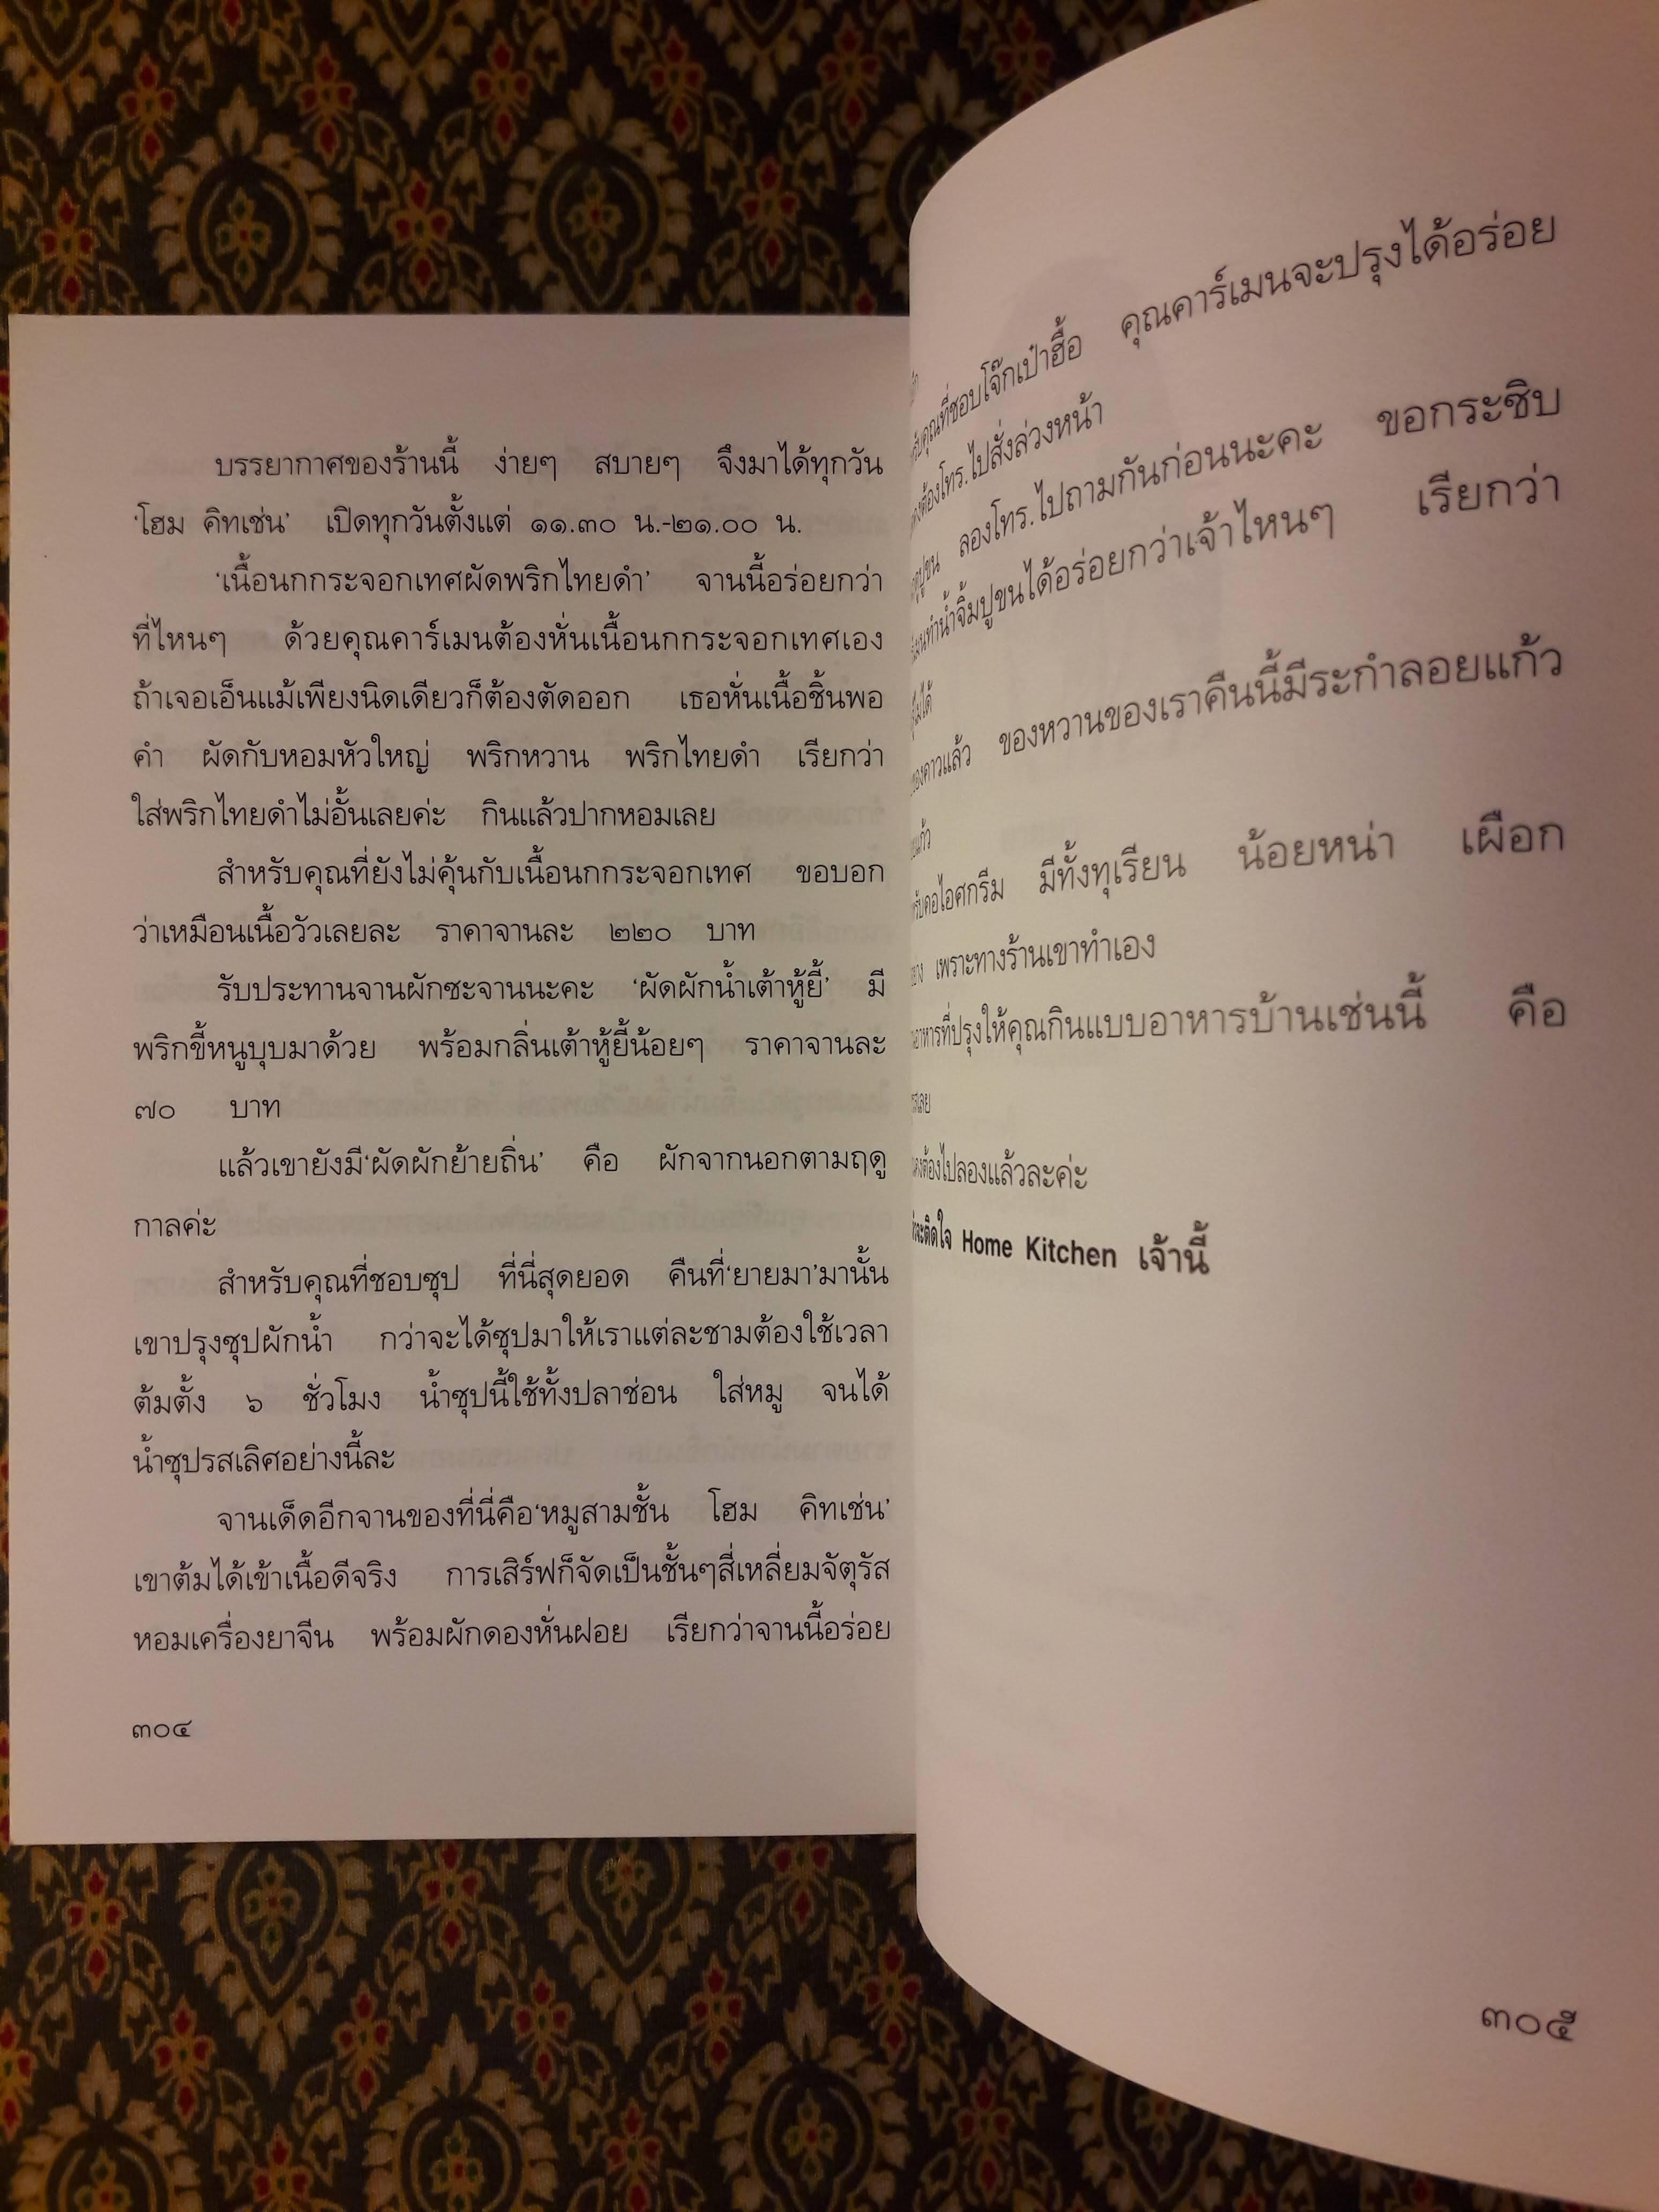 บรรยากาศของร้านนี้ ง่ายๆ สบายๆ จึงมาได้ทุกวัน
'โฮม คิทเช่น' เปิดทุกวันตั้งแต่ ๑๑.๓๐ น.-๒๑.๐๐ น.
'เนื้อนกกระจอกเทศผัดพริกไทยดำ' จานนี้อร่อยกว่า
ที่ไหนๆ ด้วยคุณคาร์เมนต้องหั่นเนื้อนกกระจอกเทศเอง
ถ้าเจอเอ็นแม้เพียงนิดเดียวก็ต้องตัดออก เธอหั่นเนื้อชิ้นพอ
คำ ผัดกับหอมหัวใหญ่ พริกหวาน พริกไทยดำ เรียกว่า
ใส่พริกไทยดำไม่อั้นเลยค่ะ กินแล้วปากหอมเลย
สำหรับคุณที่ยังไม่คุ้นกับเนื้อนกกระจอกเทศ ขอบอก
ว่าเหมือนเนื้อวัวเลยละ ราคาจานละ ๒๒๐ บาท
รับประทานจานผักซะจานนะคะ 'ผัดผักน้ำเต้าหู้ยี้' มี
พริกขี้หนูบุบมาด้วย พร้อมกลิ่นเต้าหู้ยี้น้อยๆ ราคาจานละ
๗๐ บาท
แล้วเขายังมี'ผัดผักย้ายถิ่น' คือ ผักจากนอกตามฤดู
กาลค่ะ
สำหรับคุณที่ชอบซุป ที่นี่สุดยอด คืนที่'ยายมา'มานั้น
เขาปรุงซุปผักน้ำ กว่าจะได้ซุปมาให้เราแต่ละชามต้องใช้เวลา
ต้มตั้ง ๖ ชั่วโมง น้ำซุปนี้ใช้ทั้งปลาช่อน ใส่หมู จนได้
น้ำซุปรสเลิศอย่างนี้ละ
จานเด็ดอีกจานของที่นี่คือ'หมูสามชั้น โฮม คิทเช่น'
เขาต้มได้เข้าเนื้อดีจริง การเสิร์ฟก็จัดเป็นชั้นๆสี่เหลี่ยมจัตุรัส
หอมเครื่องยาจีน พร้อมผักดองหั่นฝอย เรียกว่าจานนี้อร่อย
๓๐๔
คุณที่ชอบโจ๊กเป๋าฮื้อ คุณคาร์เมนจะปรุงได้อร่อย
ต้องโทร.ไปสั่งล่วงหน้า
ปูขน ลองโทร.ไปถามกันก่อนนะคะ ขอกระซิบ
ทำน้ำจิ้มปูขนได้อร่อยกว่าเจ้าไหนๆ เรียกว่า
ของคาวแล้ว ของหวานของเราคืนนี้มีระกำลอยแก้ว
คอไอศกรีม มีทั้งทุเรียน น้อยหน่า เผือก
เพราะทางร้านเขาทำเอง
อาหารที่ปรุงให้คุณกินแบบอาหารบ้านเช่นนี้ คือ
ต้องไปลองแล้วละค่ะ
จะติดใจ Home Kitchen เจ้านี้
๓๐๕